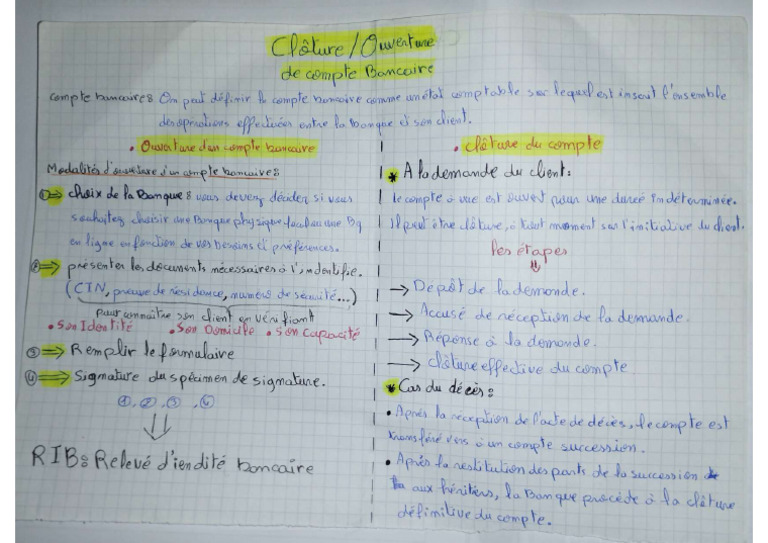 Clôture/Ouverture
de compte Bancaire
compte bancaire: On peut définir le compte bancaire comme un état comptable sur lequel est inscrit l'ensemble
des opérations effectuées entre la banque et son client.
• Ouverture d'un compte bancaire
Modalités d'ouverture d'un compte bancaire:
① => choix de la Banque: vous devez décider si vous
souhaitez choisir une Banque physique locale ou une Bq
en ligne en fonction de vos besoins et préférences.
② => présenter les documents nécessaires à l'indentifie.
(CIN, preuve de résidance, numéro de sécurité...)
pour connaître son client en vérifiant
• Son Identité • Son Domicile • Son Capacité
③ => Remplir le formulaire
④ => Signature du spécimen de signature.
①, ②, ③, ④
RIB: Relevé d'iendité bancaire
• clôture du compte
* A la demande du client:
le compte à vue est ouvert pour une durée indéterminée.
Il peut être clôturé, à tout moment sur l'initiative du client.
les étapes
→ Dépôt de la demande.
→ Accusé de réception de la demande.
→ Réponse à la demande.
→ Clôture effective du compte
* Cas du décès:
• Après la réception de l'acte de décès, le compte est
transféré vers à un compte succession.
• Après la restitution des parts de la succession
aux héritiers, la Banque procède à la clôture
définitive du compte.